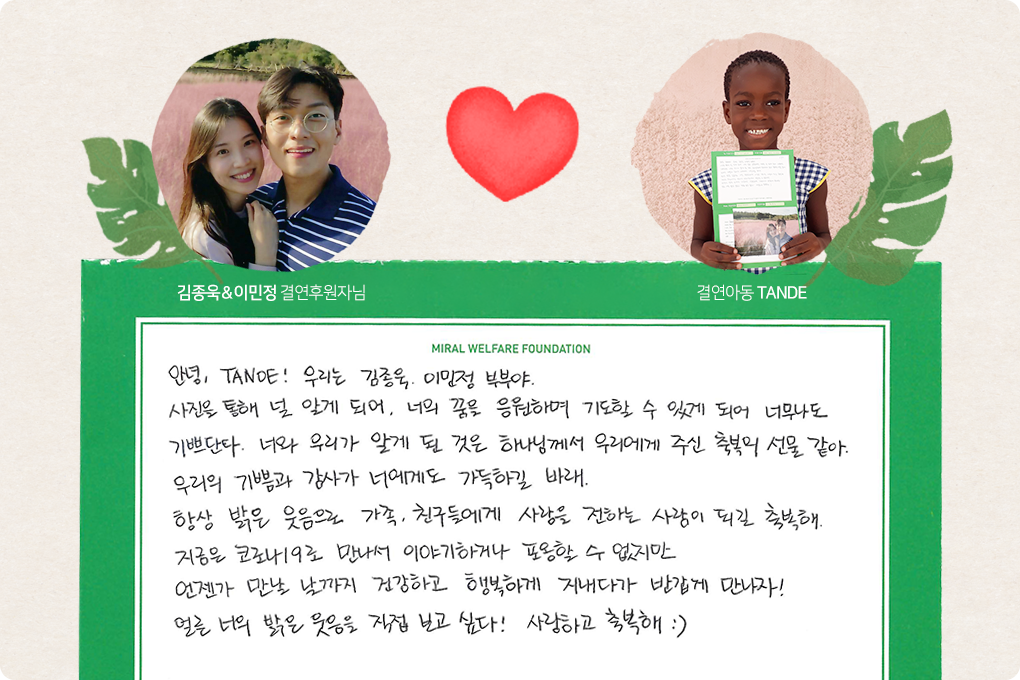 김종욱&이민정 결연후원자님
결연아동 TANDE
MIRAL WELFARE FOUNDATION
안녕, TANDE! 우리는 김종욱. 이민정 부부야.
사진을 통해 널 알게 되어, 너의 꿈을 응원하며 기도할 수 있게 되어 너무나도
기쁘단다. 너와 우리가 알게 된 것은 하나님께서 우리에게 주신 축복의 선물 같아.
우리의 기쁨과 감사가 너에게도 가득하길 바래.
항상 밝은 웃음으로 가족, 친구들에게 사랑을 전하는 사람이 되길 축복해.
지금은 코로나19로 만나서 이야기하거나 포옹할 수 없지만
언젠가 만날 날까지 건강하고 행복하게 지내다가 반갑게 만나자!
얼른 너의 밝은 웃음을 직접 보고 싶다! 사랑하고 축복해 :)